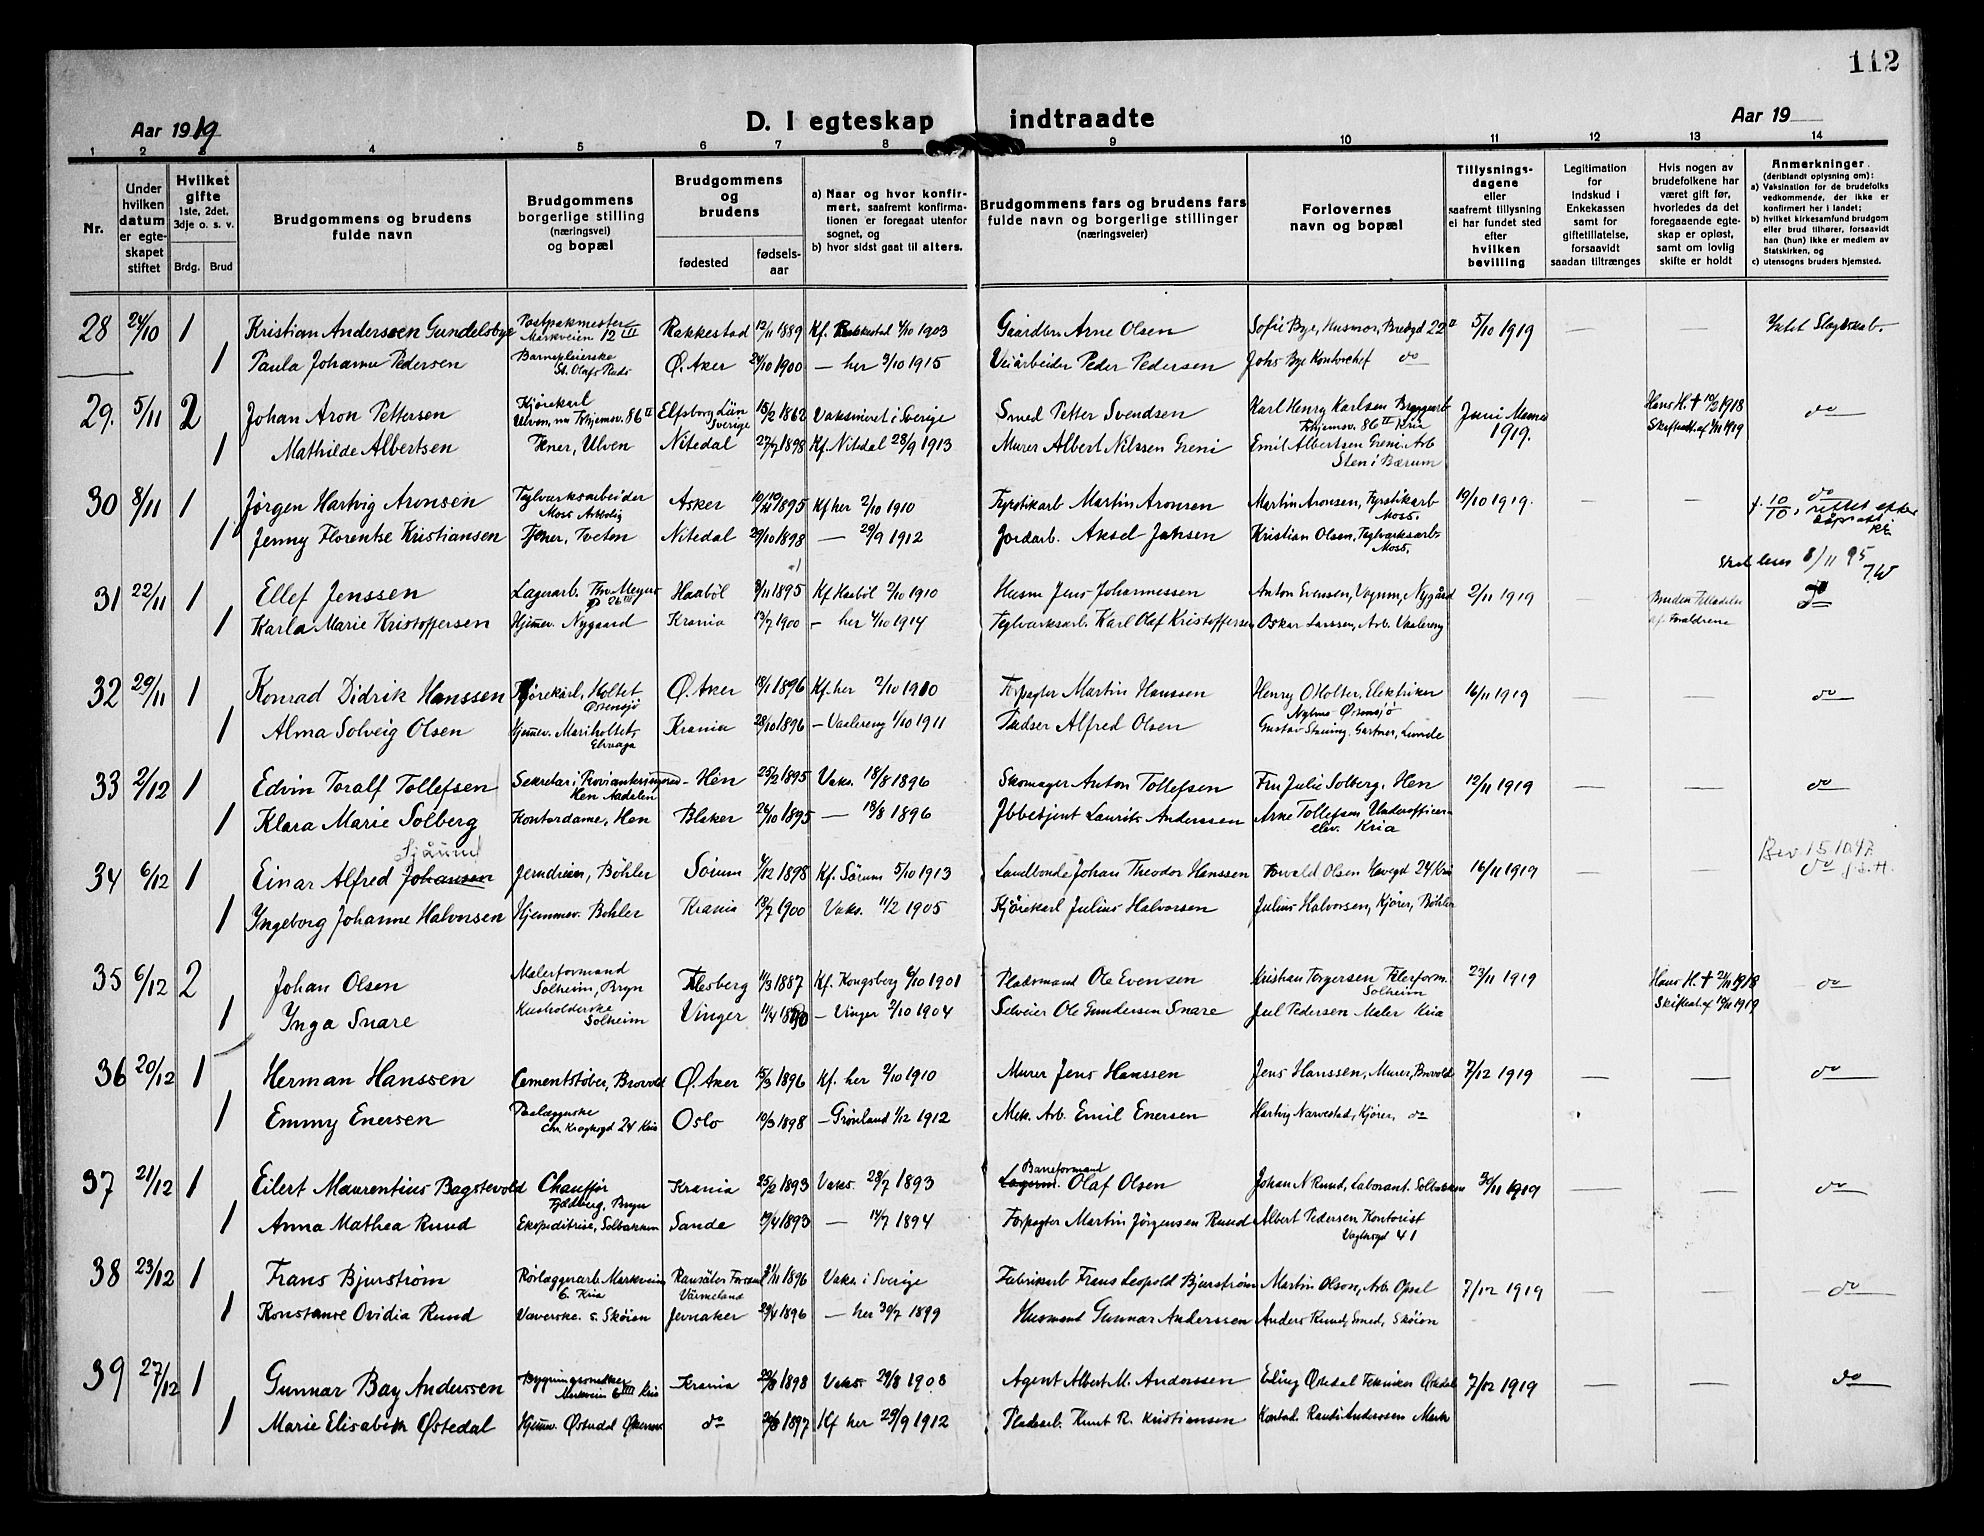 112
Aar 1919
D. I egteskap indtraadte
Aar 19
1 2 3 4 5 6 7 8 9 10 11 12 13 14
Nr.
Under hvilken datum er egteskapet stiftet
Hvilket gifte 1ste, 2det, 3dje o. s. v.
Brdg. Brud
Brudgommens og brudens fulde navn
Brudgommens borgerlige stilling (næringsvei) og bopæl
Brudgommens og brudens
fødested
fødselsaar
a) Naar og hvor konfirmert, saafremt konfirmationen er foregaat utenfor sognet, og
b) hvor sidst gaat til alters.
Brudgommens fars og brudens fars fulde navn og borgerlige stillinger (næringsveier)
Forlovernes navn og bopæl
Tillysningsdagene eller saafremt tillysning ei har fundet sted efter hvilken bevilling
Legitimation for indskud i Enkekassen samt for giftetillatelse, forsaavidt saadan tiltrænges
Hvis nogen av brudefolkene har været gift før, hvorledes da det foregaaende egteskap er opløst, samt om lovlig skifte er holdt
Anmerkninger (deriblandt oplysning om):
a) Vaksination for de brudefolks vedkommende, der ikke er konfirmert her i landet;
b) hvilket kirkesamfund brudgom eller brud tilhører, forsaavidt han (hun) ikke er medlem av Statskirken, og
c) utensogns bruders hjemsted.
28 24/10 1 Kristian Anderssen Gundelsbye Postpakmester Markveien 12 III Rakkestad 12/11 1889 Kf. Rakkestad 4/10 1903 Gaardbr. Arne Olsen Sofie Bye, Husmor, Bredgd 22 II 5/10 1919 — — Intet Slagtskab.
1 Paula Johanne Pedersen Barnepleierske St. Olafs Ø. Aker 24/10 1900 — her 3/10 1915 Veiarbeider Peder Pedersen Johs Bye Kontorchef do
29. 5/11 2 Johan Aron Pettersen Kjørekarl Ulven, nu 86 II Elfsborg Län Sverige 15/2 1862 Vaksineret i Sverige Smed Petter Svendsen Karl Henry Karlsen 86 II Kria Juni 1919. Hans H. † 10/2 1918 Skifteatt. af 1919 do
1 Mathilde Albertsen Tjener, Ulven Nitedal 27/7 1898 Kf. Nitedal 28/9 1913 Murer Albert Nilssen Greni Emil Albertsen Greni. Arb Sten i Bærum
30 8/11 1 Jørgen Hartvig Aronsen Teglværksarbeider Moss Asker 10/10 1895 Kf her 2/10 1910 Fyrstikarb Martin Aronsen Martin Aronsen, Fyrstikarb Moss. 19/10 1919. — — do
f. 10/10, rettet efter
1 Jenny Florentse Kristiansen Tjener, Tveten Nitedal 29/10 1898 — 29/9 1912 Jordarb. Aksel Jahsen Kristian Olsen, Teglværksarb. Moss.
Skal leses 8/11 95 T.W
31 22/11 1 Ellef Jenssen Lagerarb. Thv Meyers gt 26 III Haabøl 8/11 1895 Kf Haabøl 2/10 1910 Husm Jens Johannessen Anton Svenssen, Vognm., Nygård 2/11 1919 — Bruden Tilladelse af Forældrene do
1 Karla Marie Kristoffersen Hjemmev. Nygaard Krania 13/7 1900 — her 4/10 1914 Teglværksarb. Karl Olaf Kristoffersen Oskar Larssen, Arb. Vaalereng
32 29/11 1 Konrad Didrik Hanssen Kjørekarl, Holtet Østensjø Ø. Aker 18/1 1896 Kf. her 2/10 1910 Forpagter Martin Hanssen Henry O Holter, Elektriker Østensjø 16/11 1919 — do
1 Alma Solveig Olsen Hjemmev. Mariholtet Elvaaga Krania 28/10 1896 — Vaalereng 1/10 1911 Pudser Alfred Olsen Gustav Gartner, Lunde
33 2/12 1 Edvin Toralf Tollefsen Sekretær i Provianteringsraad Hen Aadalen Hén 25/2 1895 Vaks. 18/8 1896 Skomager Anton Tollefsen Fru Julie Solberg, Hen 12/11 1919 — — do
1 Klara Marie Solberg Kontordame, Hen Blaker 26/10 1895 — 18/8 1896 Ibbestjent Laurits Anderssen Arne Tollefsen Underofficers elev. Kria
Sjåund
34 6/12 1 Einar Alfred Johansen Jerndreier, Bøhler Sørum 4/12 1898 Kf. Sørum 5/10 1913 Landbonde Johan Theodor Hanssen Torvald Olsen Havegd 24 Kria 16/11 1919 Bev 15.10.47. do
1 Ingeborg Johanne Halvorsen Hjemmev. Bøhler Krania 18/7 1900 Vaks. 11/2 1905 Kjørekarl Julius Halvorsen Julius Halvorsen, Kjører, Bøhler
35 6/12 2 Johan Olsen Malerformand Solheim, Bryn Flesberg 11/3 1887 Kf. Kongsberg 6/10 1901 Pladsmand Ole Evensen Kristian Torgersen Solheim 23/11 1919 Hans H. † 21/11 1918 Skifteat. af 1919 do
1 Ynga Snare Husholderske Solheim Vinger 11/4 1890 — Vinger 2/10 1904 Selveier Ole Gundersen Snare Jul Pedersen Maler Kria
36 20/12 1 Herman Hanssen Cementstøber, Brovold Ø. Aker 15/3 1896 Kf. her 2/10 1910 Murer Jens Hanssen Jens Hanssen, Murer, Brovold 7/12 1919 — — do
1 Emmy Enersen Chr. Kroghsgd 24 Kria Oslo 10/3 1898 — Grønland 1/12 1912 Mek. Arb. Emil Enersen Hartvig Narvestad, Kjører, do
37 21/12 1 Eilert Maurentius Bagstevold Chauffør Fjeldberg, Bryn Krania 25/2 1893 Vaks. 28/7 1893 Lagerm. Barreformand Olaf Olsen Johan N Ruud, Laborant. Solbakken 30/11 1919 — — do
1 Anna Mathea Ruud Ekspeditrise, Solbakken Sande 19/4 1893 — 14/7 1894 Forpagter Martin Jørgensen Ruud Albert Pedersen Kontorist Vogtsgd 41
38 23/12 1 Frans Bjurstrøm Rørlæggerarb. Markveien 6. Kria Ransäter Värmeland 21/11 1896 Vaks. i Sverige Fabrikarb Frans Leopold Bjurstrøm Martin Olsen, Arb. Opsal 7/12 1919 — — do
1 Konstanse Ovidia Ruud Væverske. s. Skøien Jevnaker 29/4 1896 — her 30/7 1899 Husmand Gunnar Anderssen Anders Ruud, Smed, Skøien
39 27/12 1 Gunnar Bay Anderssen Bygningssnedker Markvein 6 III Kria Krania 22/8 1898 Vaks. 29/8 1903 Agent Albert M. Anderssen Erling Østedal Tekniker Østedal 7/12 1919 do
1 Marie Elisabeth Østedal Hjemmev. Østedal do 1897 Kf her 29/9 1912 Pladsarb. Knut R. Kristiansen Kontord. Randi Anderssen Markv